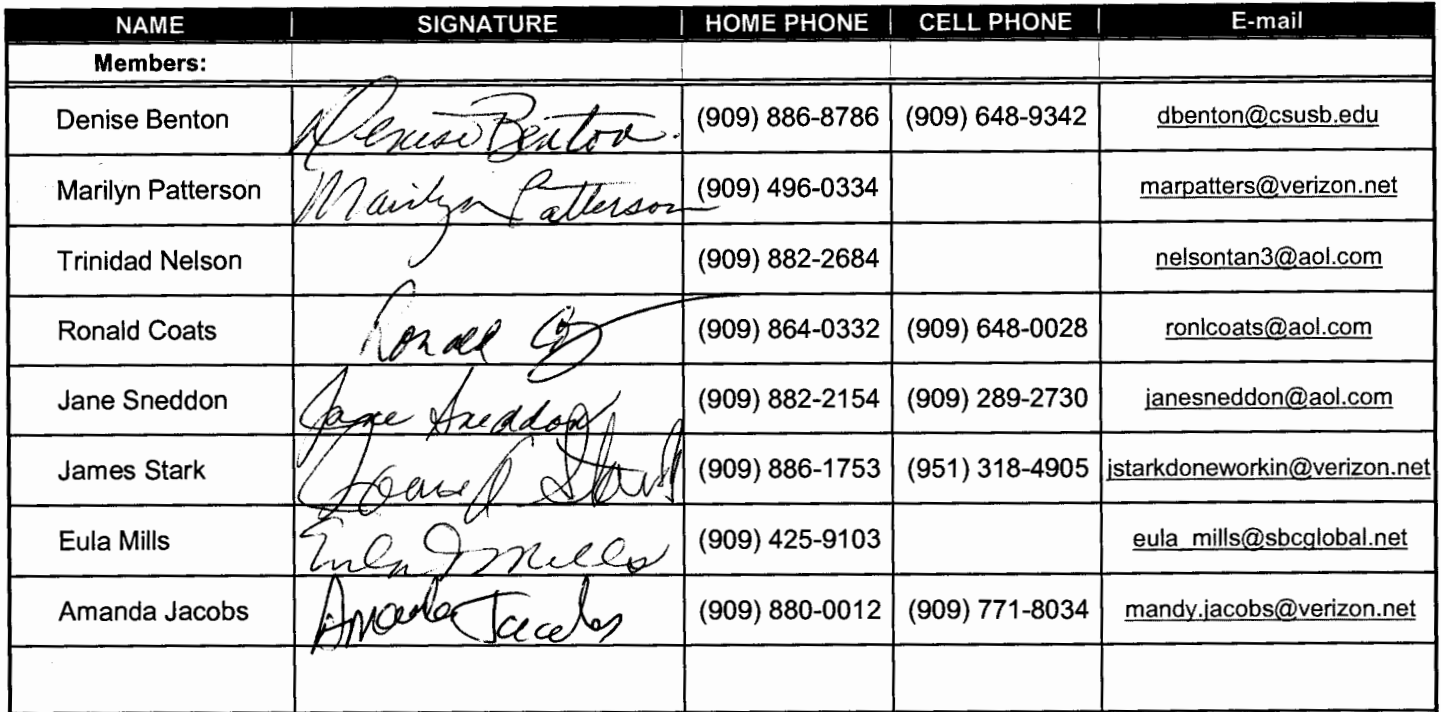 NAME SIGNATURE HOME PHONE CELL PHONE E-mail
Members:
Denise Benton Denise Benton (909) 886-8786 (909) 648-9342 dbenton@csusb.edu
Marilyn Patterson Marilyn Patterson (909) 496-0334 marpatters@verizon.net
Trinidad Nelson (909) 882-2684 nelsontan3@aol.com
Ronald Coats Ronald (909) 864-0332 (909) 648-0028 ronlcoats@aol.com
Jane Sneddon Jane Sneddon (909) 882-2154 (909) 289-2730 janesneddon@aol.com
James Stark Stark (909) 886-1753 (951) 318-4905 jstarkdoneworkin@verizon.net
Eula Mills Eula J Mills (909) 425-9103 eula_mills@sbcglobal.net
Amanda Jacobs Amanda Jacobs (909) 880-0012 (909) 771-8034 mandy.jacobs@verizon.net